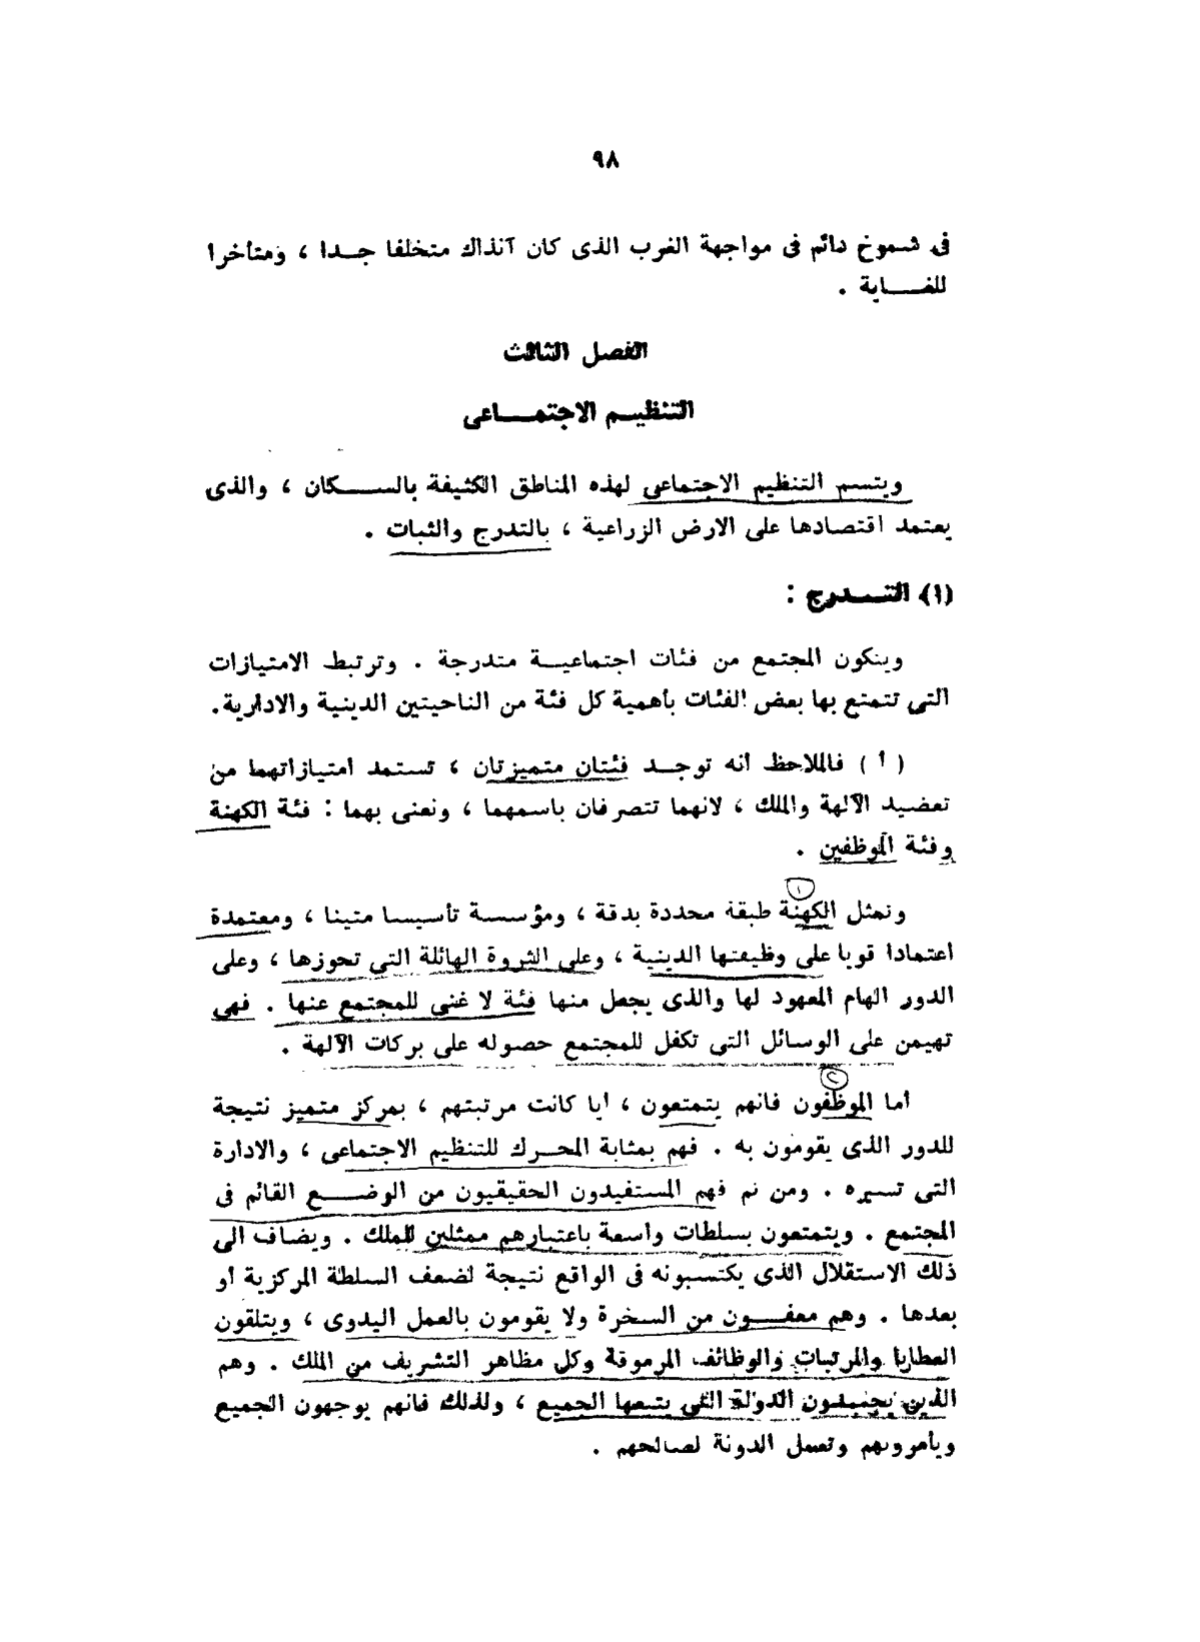 ٩٨
فى شموخ دائم فى مواجهة الغرب الذى كان آنذاك متخلفا جـدا ، ومتأخرا
للغـــاية .
الفصل الثالث
التنظيـم الاجتمـــاعى
ويتسم التنظيم الاجتماعى لهذه المناطق الكثيفة بالســـكان ، والذى
يعتمد اقتصادها على الارض الزراعية ، بالتدرج والثبات .
(١) التـــدرج :
ويتكون المجتمع من فئات اجتماعيـة متدرجة . وترتبط الامتيازات
التى تتمتع بها بعض الفئات بأهمية كل فئة من الناحيتين الدينية والادارية.
( أ ) فالملاحظ انه توجـد فئتان متميزتان ، تستمد امتيازاتهما من
تعضيد الآلهة والملك ، لانهما تتصرفان باسمهما ، ونعنى بهما : فئة الكهنة
وفئة الموظفين .
١
وتمثل الكهنة طبقة محددة بدقة ، ومؤسسة تأسيسا متينا ، ومعتمدة
اعتمادا قويا على وظيفتها الدينية ، وعلى الثروة الهائلة التى تحوزها ، وعلى
الدور الهام المعهود لها والذى يجعل منها فئة لا غنى للمجتمع عنها . فهى
تهيمن على الوسائل التى تكفل للمجتمع حصوله على بركات الآلهة .
٢
أما الموظفون فانهم يتمتعون ، أيا كانت مرتبتهم ، بمركز متميز نتيجة
للدور الذى يقومون به . فهم بمثابة المحـرك للتنظيم الاجتماعى ، والادارة
التى تسيره . ومن ثم فهم المستفيدون الحقيقيون من الوضـــع القائم فى
المجتمع . ويتمتعون بسلطات واسعة باعتبارهم ممثلين للملك . ويضاف الى
ذلك الاستقلال الذى يكتسبونه فى الواقع نتيجة لضعف السلطة المركزية أو
بعدها . وهم معفـــون من السخرة ولا يقومون بالعمل اليدوى ، ويتلقون
العطايا والمرتبات والوظائف المرموقة وكل مظاهر التشريف من الملك . وهم
الذين يجسدون الدولة التى يتبعها الجميع ، ولذلك فانهم يوجهون الجميع
ويأمرونهم وتعمل الدولة لصالحهم .